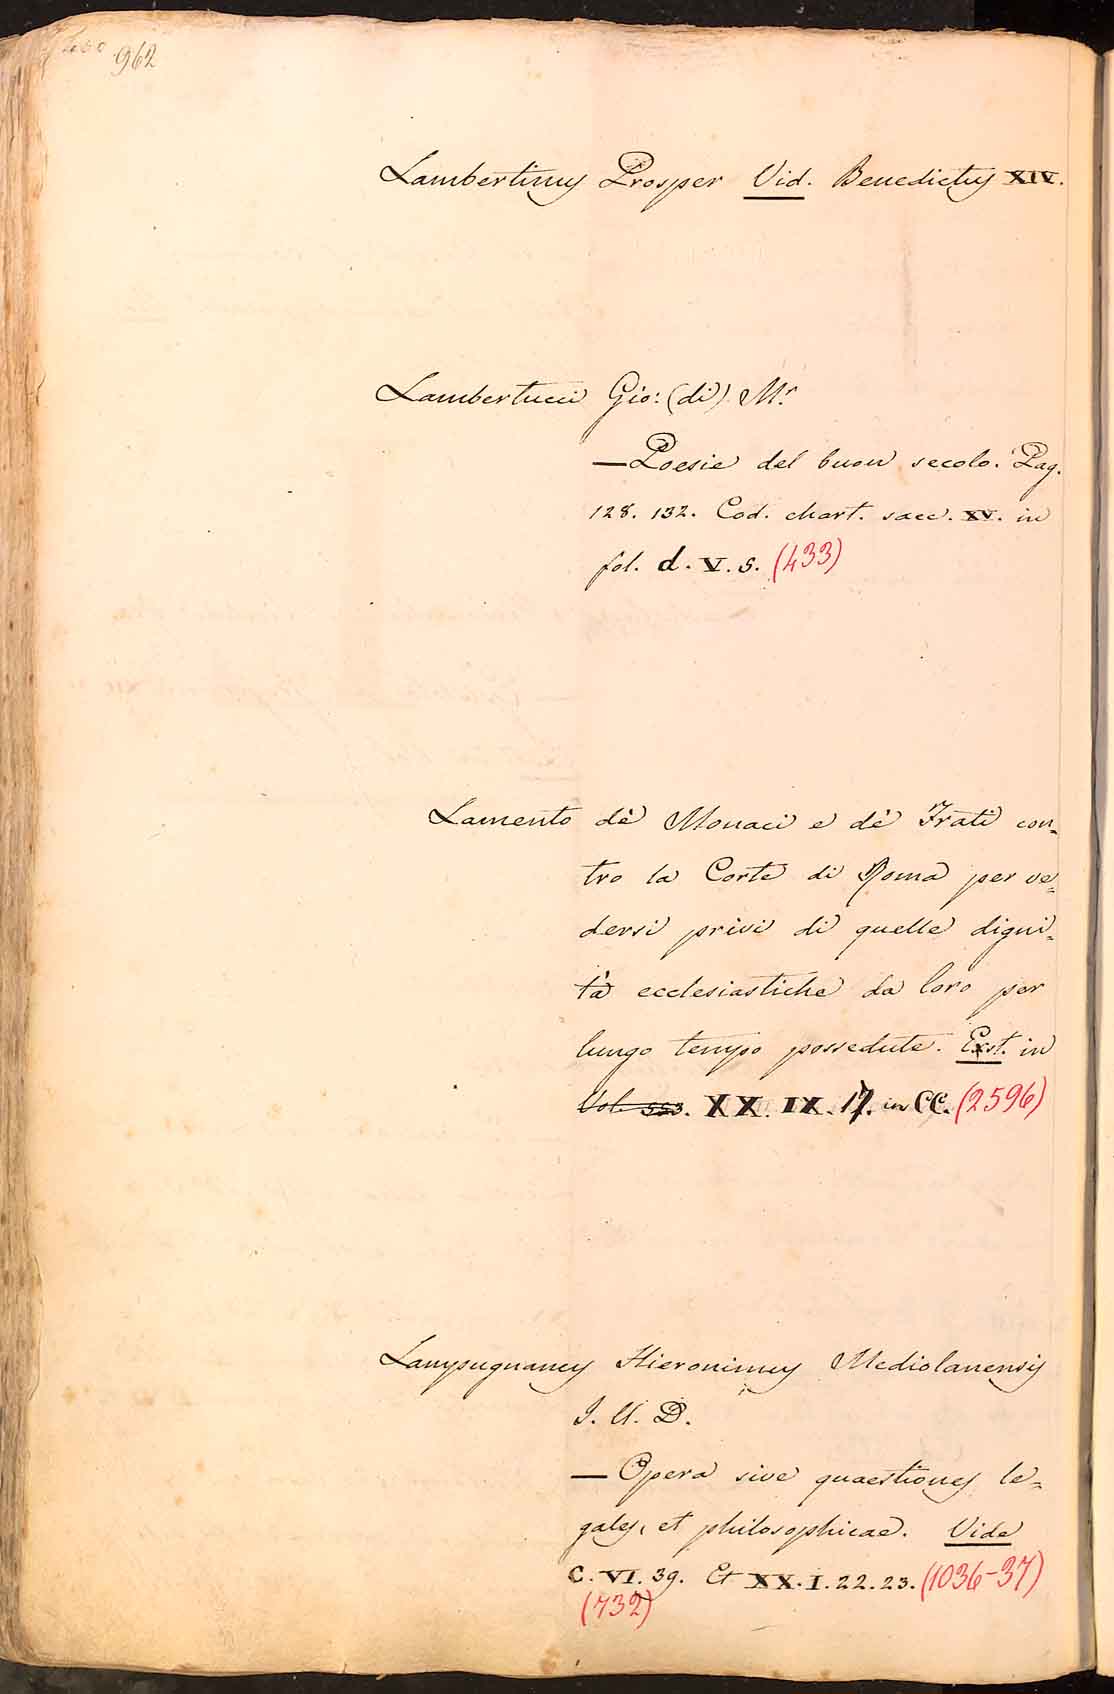 962
Lambertinus Prosper Vid. Benedictus XIV.
Lambertucci Gio: (di) Mr
— Poesie del buon secolo. Pag.
128. 132. Cod. chart. saec. XV. in
fol. d. V. 5. (433)
Lamento dè Monaci e dè Frati con=
tro la Corte di Roma per ve=
dersi privi di quelle digni=
tà ecclesiastiche da loro per
lungo tempo possedute. Exst. in
Vol. 553. XX. IX. 17. in CC. (2596)
Lampugnanus Hieronimus Mediolanensis
I. U. D.
— Opera sive quaestiones le=
gales, et philosophicae. Vide
C. VI. 39. Et XX. I. 22. 23. (1036-37)
(732)